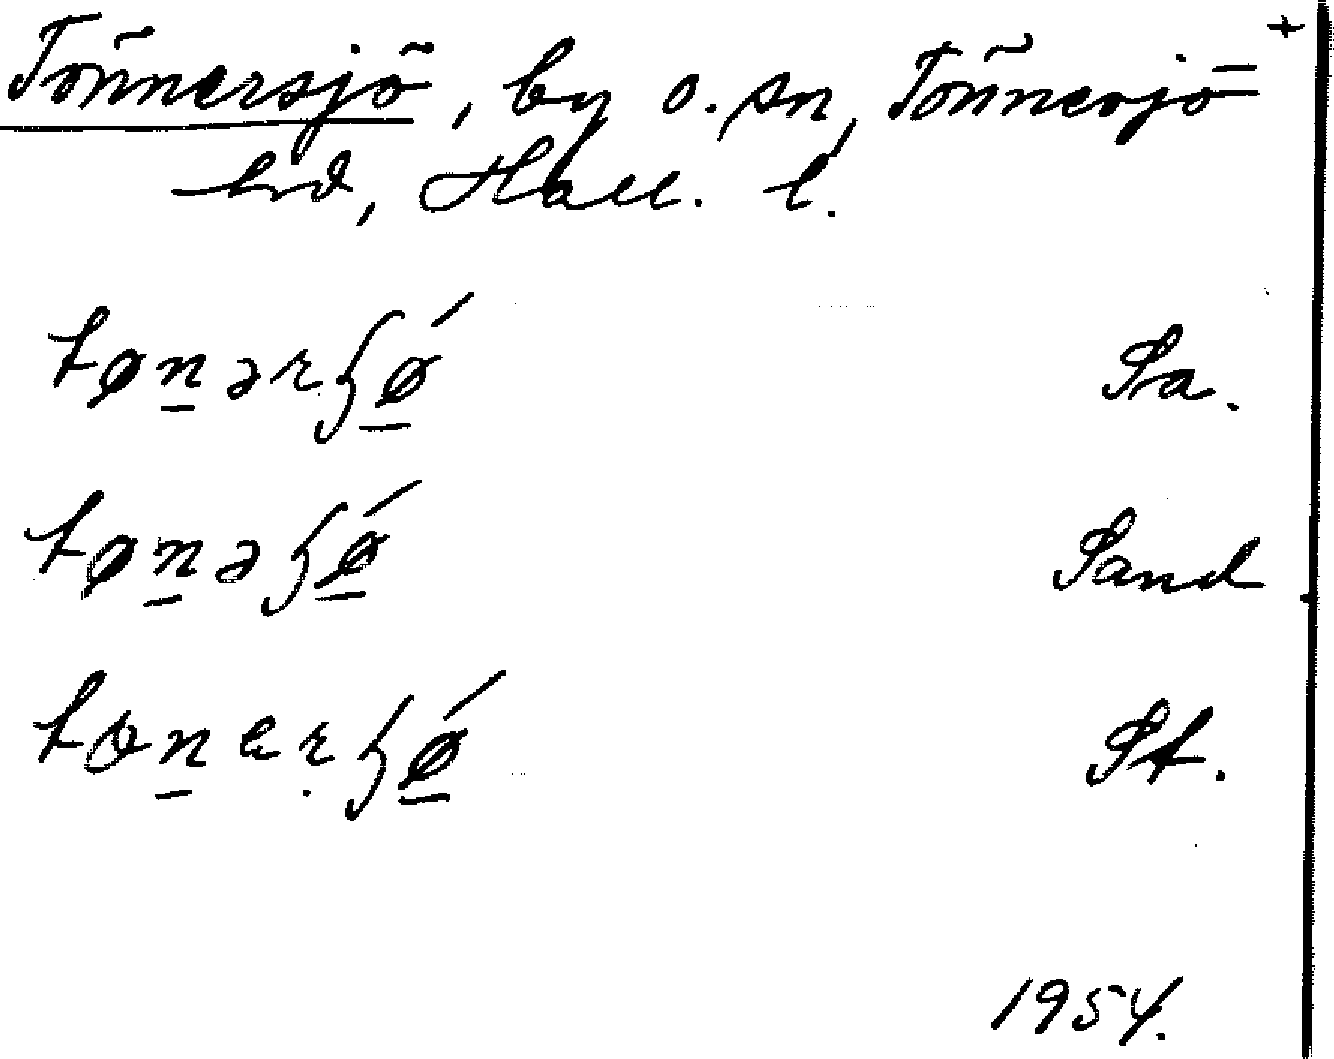 +
Tönnersjö, by o. sn, Tönnersjö
hrd, Hall. l.
tøn̲ərɧǿ̲ Sa.
tøn̲əɧǿ̲ Sand
St.
1954.